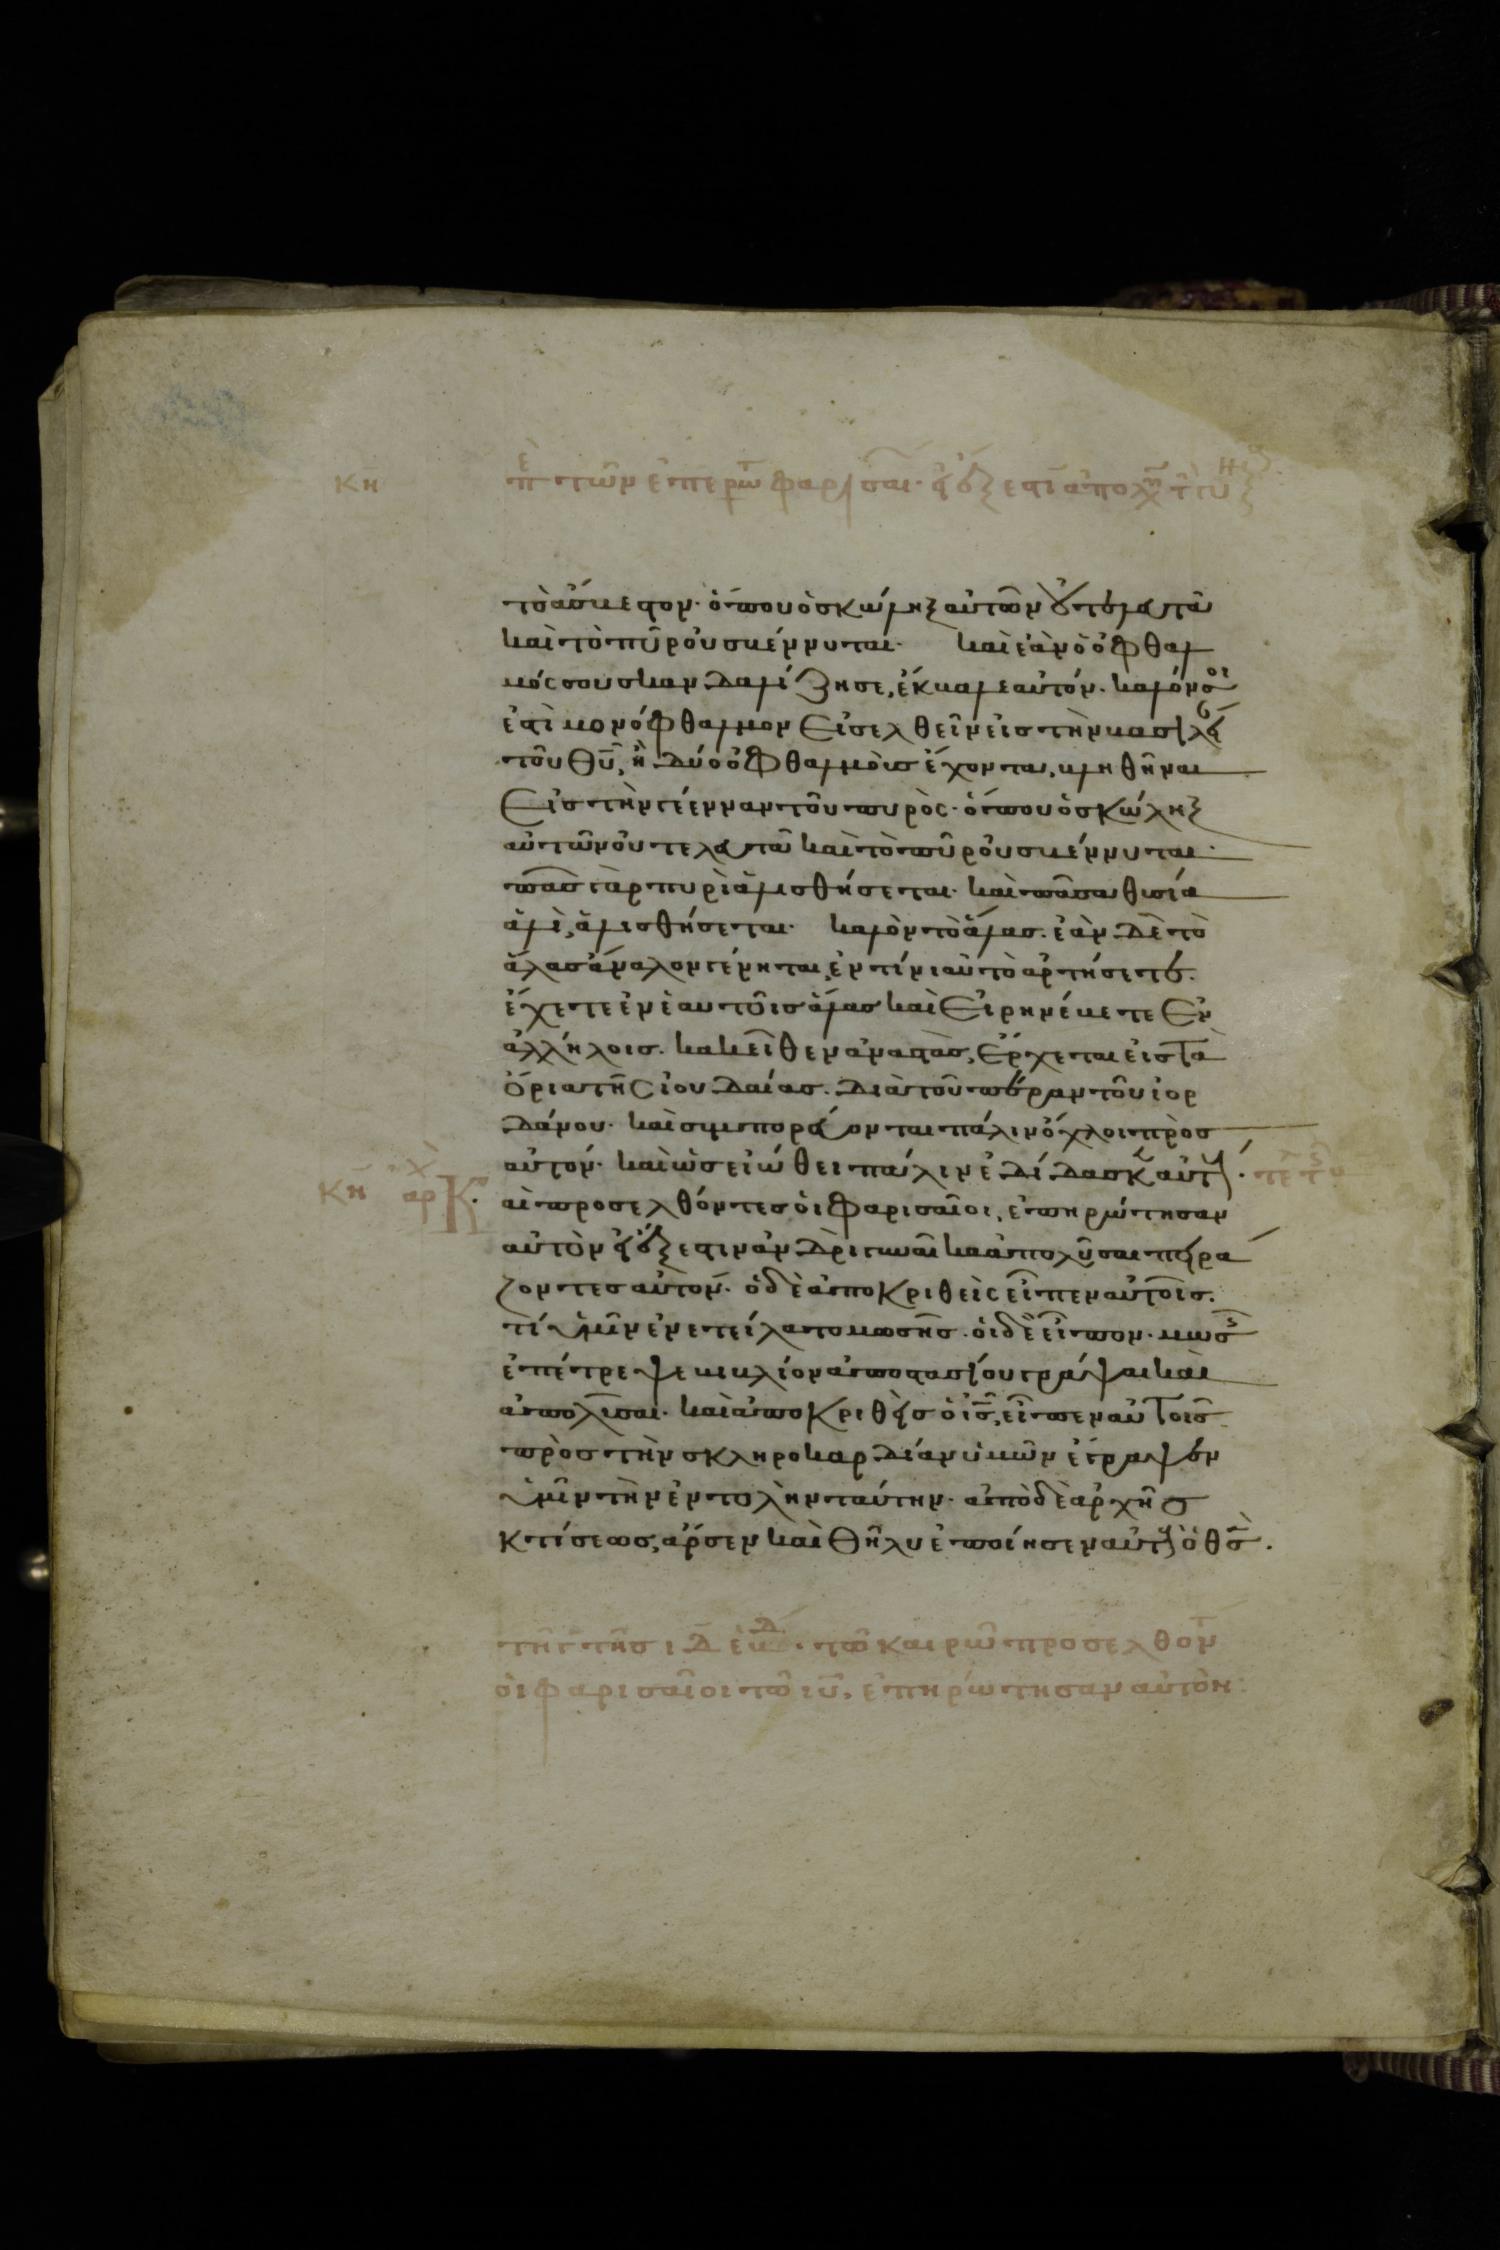 κη
τὸ ἄσβεστον· ὅπου ὁ σκώληξ αὐτῶν οὐ τελευτᾶ
καὶ τὸ πῦρ οὐ σβέννυται· καὶ ἐὰν ὁ ὀφθαλ
μός σου σκανδαλίζη σε, ἔκβαλε αὐτόν· καλόν σοι
ἐστὶ μονόφθαλμον εἰσελθεῖν εἰς τὴν βασιλεί
τοῦ θυ, ἢ δύο ὀφθαλμοὺς ἔχοντα, βληθῆναι
εἰς τὴν γέενναν τοῦ πυρὸς· ὅπου ὁ σκώληξ
αὐτῶν οὐ τελευτᾶ καὶ τὸ πῦρ οὐ σβέννυται·
πᾶς γὰρ πυρὶ ἁλισθήσεται· καὶ πᾶσα θυσία
ἁλὶ, ἁλισθήσεται· καλὸν τὸ ἅλας· ἐὰν δὲ τὸ
ἅλας ἄναλον γένηται, ἐν τίνι αὐτὸ ἀρτήσετε·
ἔχετε ἐν ἑαυτοῖς ἅλας καὶ εἰρηνεύετε ἐν
ἀλλήλοις· κακεῖθεν ἀναστὰς, ἔρχεται εἰς τὰ
ὅρια τῆς ἰουδαίας· διὰ τοῦ πέραν τοῦ ἰορ
δάνου· καὶ συμπορεύονται πάλιν ὄχλοι πρὸς
αὐτόν· καὶ ὡς εἰώθει πάλιν ἐδίδασκ αὐτ·
κη αρ Κ
αὶ προσελθόντες οἱ φαρισαῖοι, ἐπηρώτησαν
αὐτὸν εἰ ἔξεστιν ἀνδρὶ γυναῖκα ἀπολῦσαι πειρά
ζοντες αὐτόν· ὁ δὲ ἀποκριθεὶς εἶπεν αὐτοῖς·
τί ὑμῖν ἐνετείλατο μωσῆς· οἱ δὲ εἶπον· μωσ
ἐπέτρεψε βιβλίον ἀποστασίου γράψαι καὶ
ἀπολῦσαι· καὶ ἀποκριθεὶς ὁ ις, εἶπεν αὐτοῖς
πρὸς τὴν σκληροκαρδίαν ὑμῶν ἔγραψεν
ὑμῖν τὴν ἐντολὴν ταύτην· ἀπὸ δὲ ἀρχῆς
κτίσεως, ἄρσεν καὶ θῆλυ ἐποίησεν αὐτ ὁ θς·
τῶ καιρῶ προσελθον
οἱ φαρισαῖοι τῶ ιυ, ἐπηρώτησαν αὐτὸν: